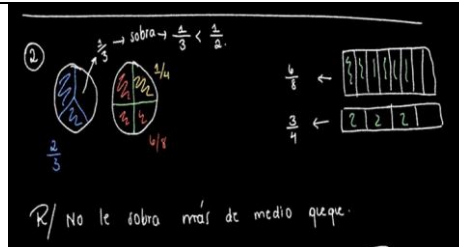 2
1/3 → sobra → 1/3 < 1/2.
1/4
6/8 ←
3/4 ←
2/3
6/8
R/ No le sobra más de medio queque.